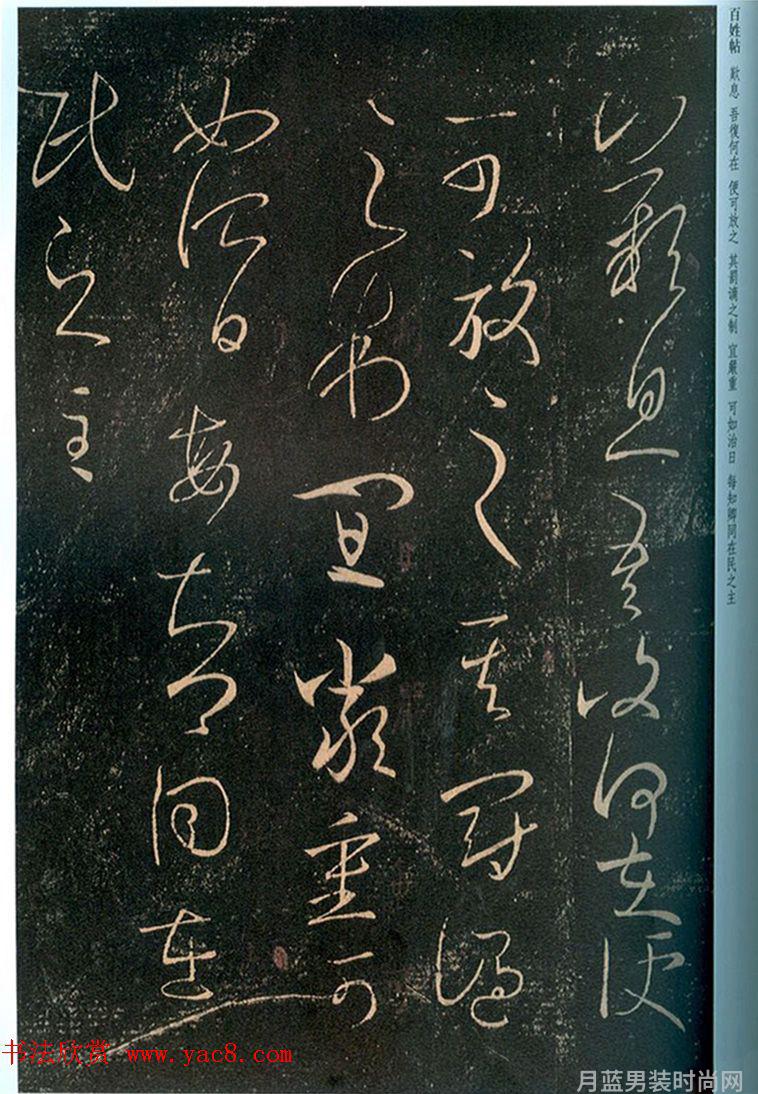 百姓帖 歎息 吾復何在 便可放之 其罰謫之制 宜嚴重 可如治日 每知卿同在民之主
歎息吾復何在便
可放之其罰謫
之制宜嚴重可
如治日每知卿同在
民之主
书法欣赏 www.yac8.com
月蓝男装时尚网